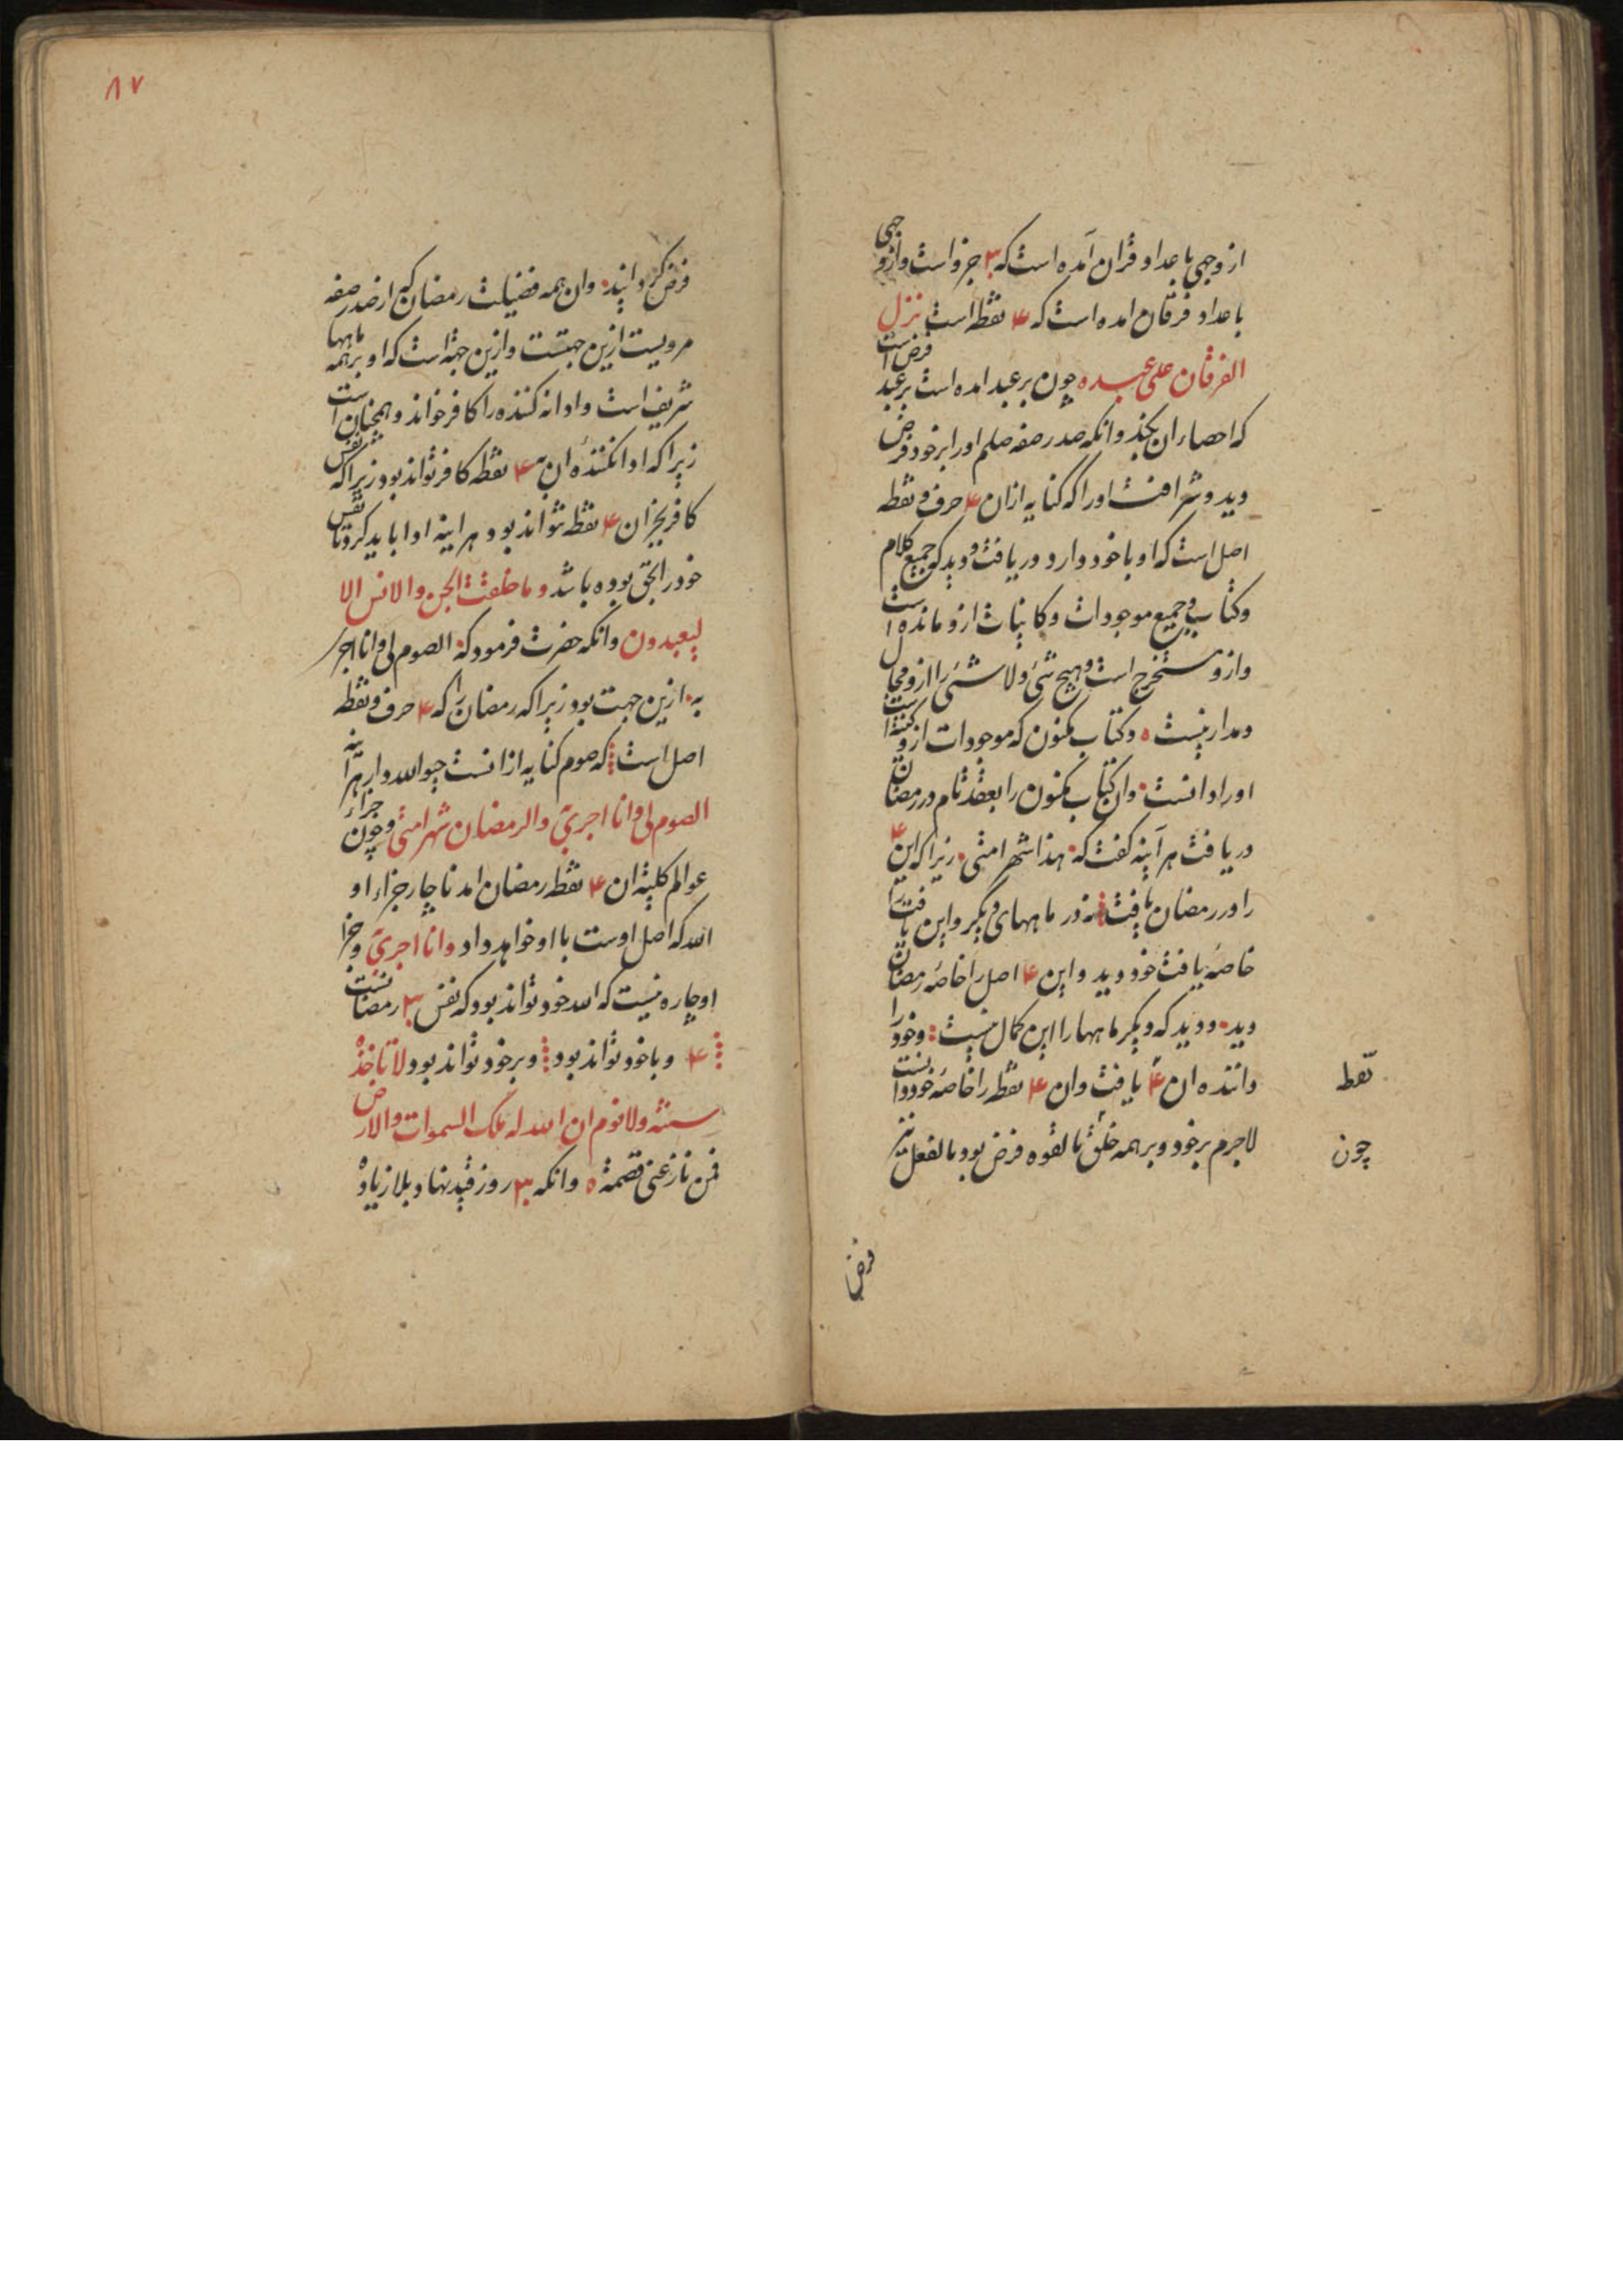 از وجهی باعداد قرآن آمده است که ۳۰ جزو است و از وجهی
باعداد فرقان امده است که ۴ نقطه است نزل
الفرقان علی عبده چون بر عبد امده است بر عبد فرض است
که احصاء ان بکند وانکه صدر صفه صلم اورا بر خود فرض
دید و شرافت اورا که کنایه ازان ۴ حرف و نقطه
اصل است که او با خود دارد دریافت و دید که جمیع کلام
وکتاب و جمیع موجودات و کاینات ازو مانده است
وازو مستخرج است و هیچ شیء و لا شیء را ازو مجال
ومدار نیست ه وکتاب مکنون که موجودات ازو کننده است
اورا دانست وان کتاب مکنون را بعقد تام در رمضان
دریافت هر آینه کفت که هذا شهر امتی زیرا که این ۴
را در رمضان یافت نه در ماههای دیکر واین یافت را
خاصهٔ یافت خود دید واین ۴ اصل را خاصهٔ رمضان
دید ودید که دیکر ماهها را این کمال نیست وخود را
داننده ان ۴ یافت وان ۴ نقطه را خاصهٔ خود دانست
نقط
لاجرم بر خود وبر همه خلق بالقوه فرض بود بالفعل نیز
چون
فرض
۸۷
فرض کردانید وان همه فضیلت رمضان که از صدر صفه
مرویست ازین جهتست وازین جهة است که او بر همه ماهها
شریف است وادا نه کننده را کافر خواند وهمچنان است
زیرا که ادا نکننده ان ۴ نقطه کافر تواند بود زیرا که نفس
کافر بجز ان ۴ نقطه نتواند بود هر اینه ادا باید کرد تا نفس
خود را بحق بوده باشد وما خلقت الجن والانس الا
لیعبدون وانکه حضرت فرمود که الصوم لی وانا اجر
به ازین جهت بود زیرا که رمضان را که ۴ حرف و نقطه
اصل است که صوم کنایه ازانست چو الله دار هر آینه
الصوم لی وانا اجزئ والرمضان شهر امتی وچون جزاء
عوالم کلیهٔ ان ۴ نقط رمضان امد ناچار جزاء او
الله که اصل اوست با او خواهد داد وانا اجزئ وجزا
او چاره نیست که الله خود تواند بود که نفس ۳۰ رمضانست
۴ وبا خود تواند بود وبر خود تواند بود لا تاخذه
سنة ولا نوم ان الله له ملک السموات والارض
فمن نازعنی قصمته ه وانکه ۳۰ روز قید نهاد بلا زیاده